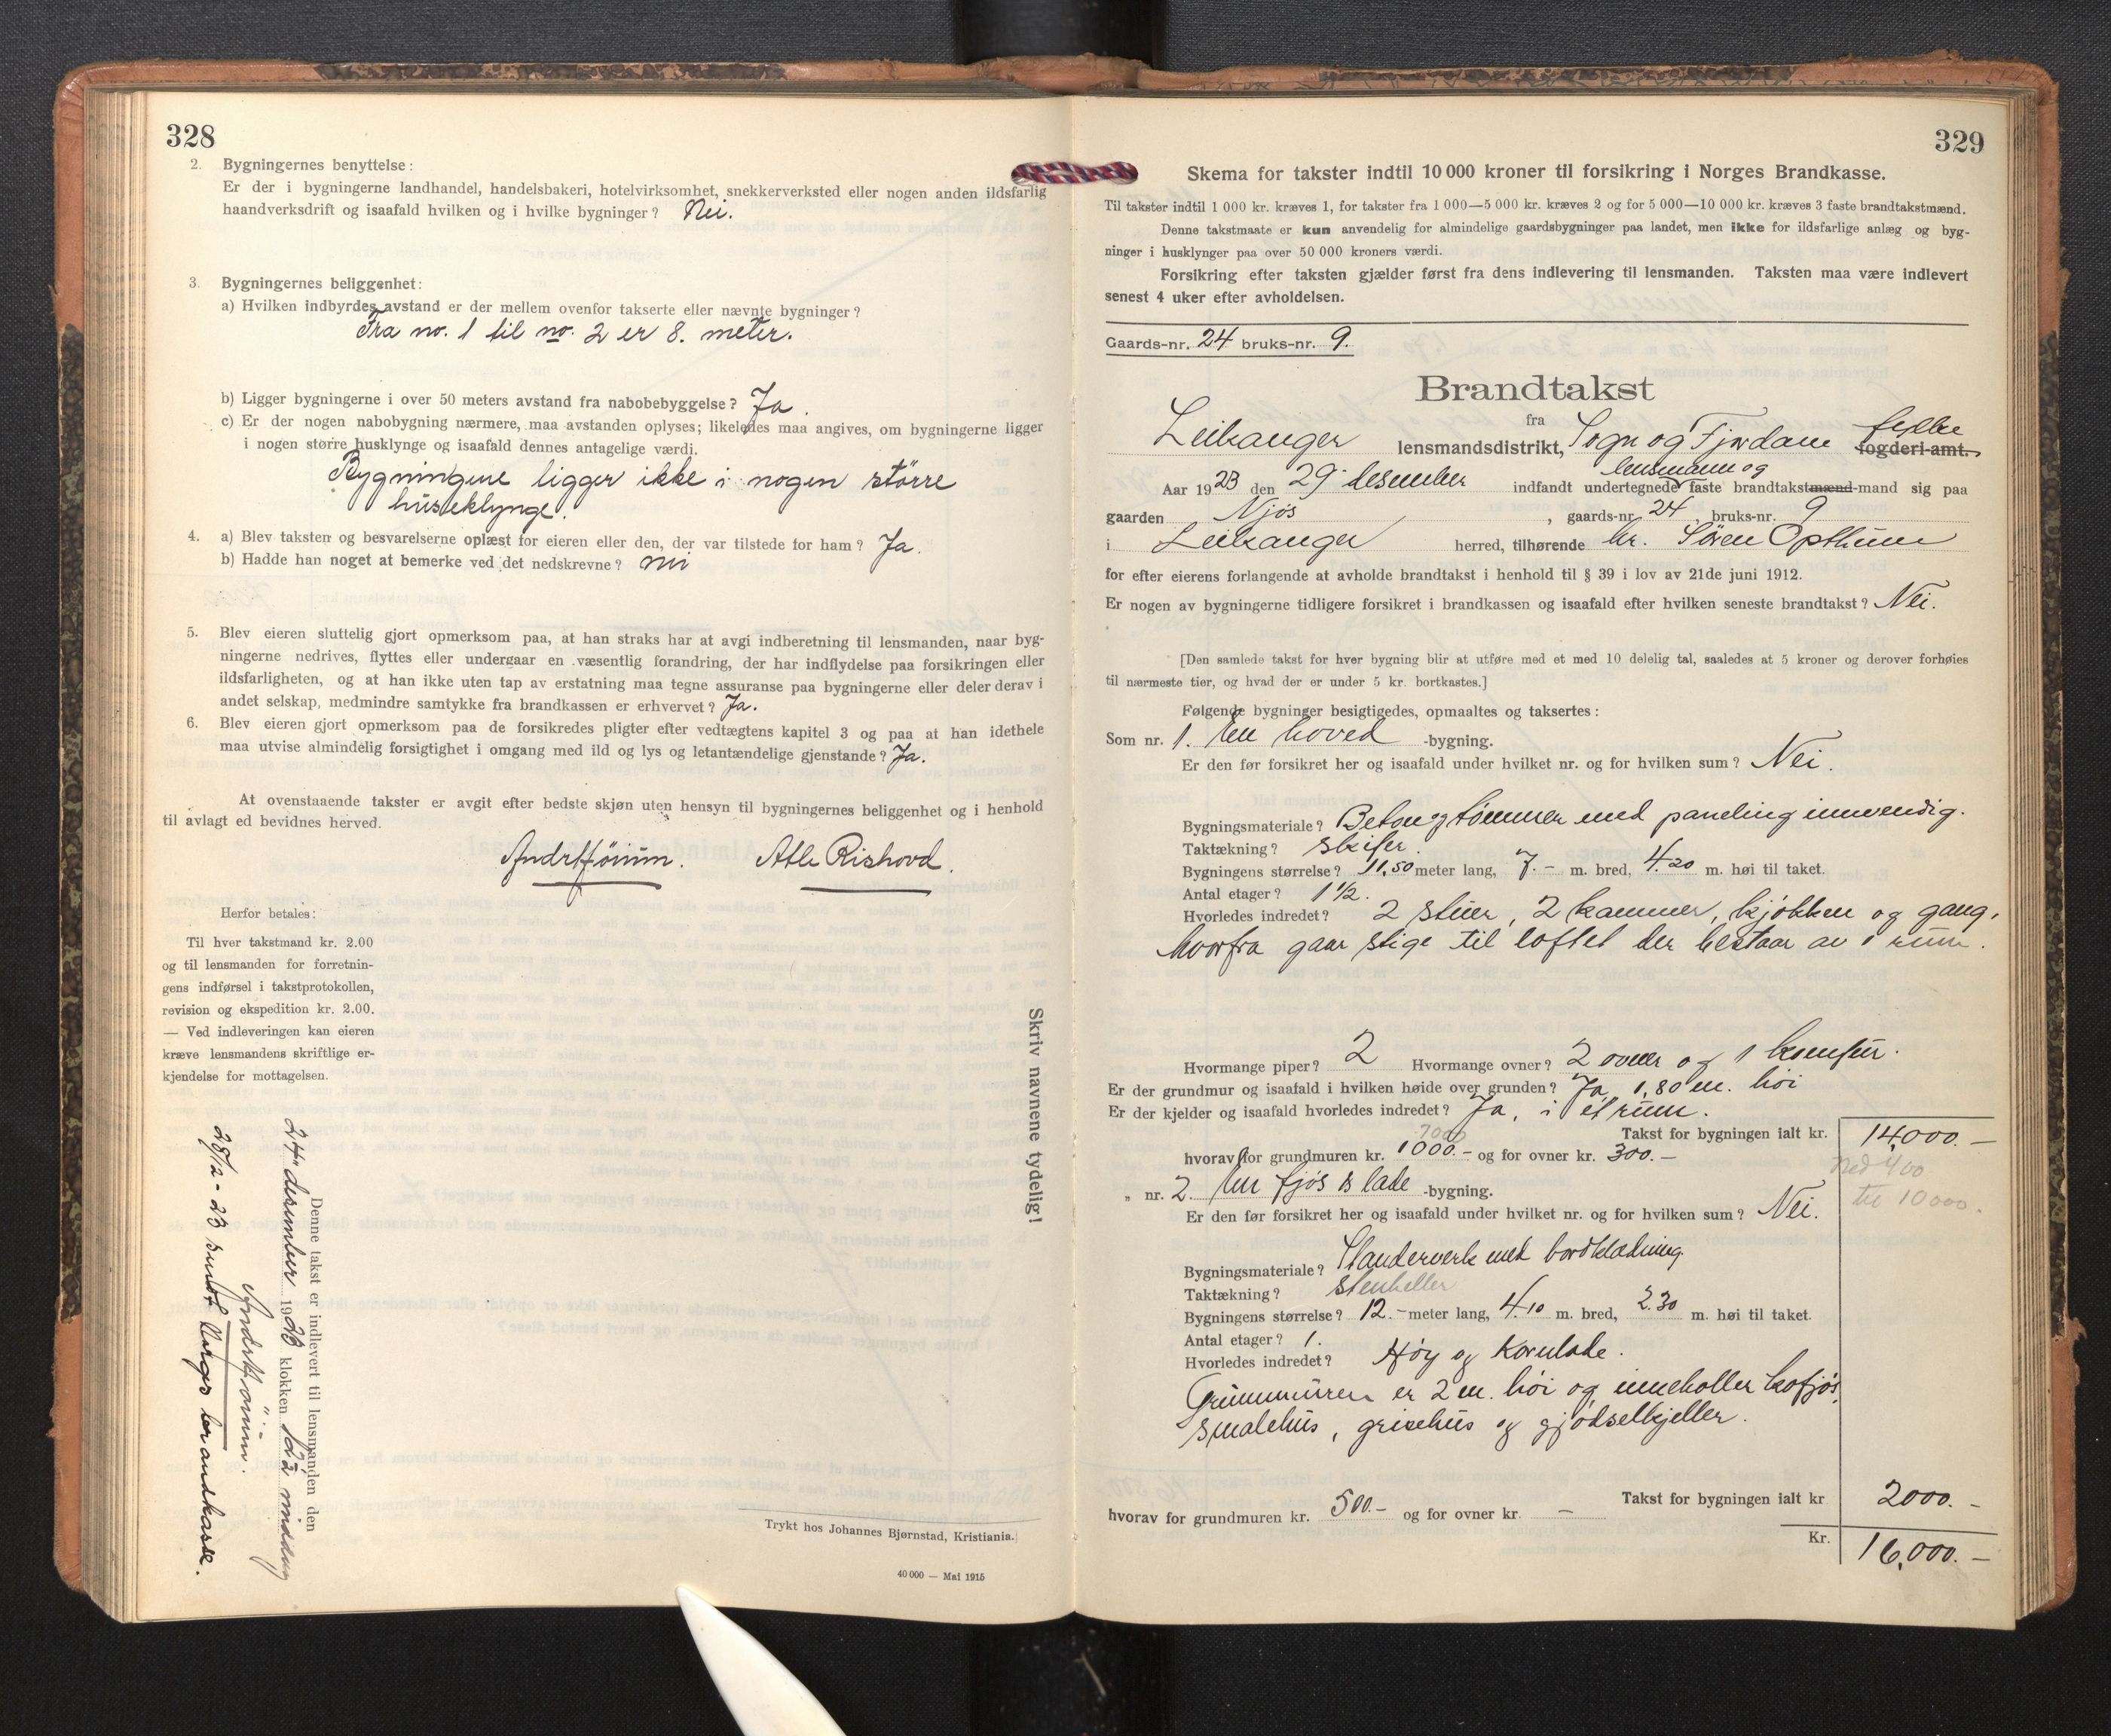 328
2. Bygningernes benyttelse:
Er der i bygningerne landhandel, handelsbakeri, hotelvirksomhet, snekkerverksted eller nogen anden ildsfarlig
haandverksdrift og isaafald hvilken og i hvilke bygninger? Nei.
3. Bygningernes beliggenhet:
a) Hvilken indbyrdes avstand er der mellem ovenfor takserte eller nævnte bygninger?
Fra no. 1 til no. 2 er 8. meter.
b) Ligger bygningerne i over 50 meters avstand fra nabobebyggelse? Ja.
c) Er der nogen nabobygning nærmere, maa avstanden oplyses; likeledes maa angives, om bygningerne ligger
i nogen større husklynge og isaafald dennes antagelige værdi.
Bygningene ligger ikke i nogen större
huseklynge.
4. a) Blev taksten og besvarelserne oplæst for eieren eller den, der var tilstede for ham? Ja.
b) Hadde han noget at bemerke ved det nedskrevne? nei
5. Blev eieren sluttelig gjort opmerksom paa, at han straks har at avgi indberetning til lensmanden, naar byg-
ningerne nedrives, flyttes eller undergaar en væsentlig forandring, der har indflydelse paa forsikringen eller
ildsfarligheten, og at han ikke uten tap av erstatning maa tegne assuranse paa bygningerne eller deler derav i
andet selskap, medmindre samtykke fra brandkassen er erhvervet? Ja.
6. Blev eieren gjort opmerksom paa de forsikredes pligter efter vedtægtens kapitel 3 og paa at han idethele
maa utvise almindelig forsigtighet i omgang med ild og lys og letantændelige gjenstande? Ja.
At ovenstaaende takster er avgit efter bedste skjøn uten hensyn til bygningernes beliggenhet og i henhold
til avlagt ed bevidnes herved.
Atle Rishovd.
Herfor betales:
Til hver takstmand kr. 2.00
og til lensmanden for forretnin-
gens indførsel i takstprotokollen,
revision og ekspedition kr. 2.00.
— Ved indleveringen kan eieren
kræve lensmandens skriftlige er-
kjendelse for mottagelsen.
Skriv navnene tydelig!
Denne takst er indlevert til lensmanden den
24. desember 1923 klokken 12 middag
28/12-23 sendt Norges brandkasse.
Trykt hos Johannes Bjørnstad, Kristiania.
40 000 — Mai 1915
329
Skema for takster indtil 10 000 kroner til forsikring i Norges Brandkasse.
Til takster indtil 1 000 kr. kræves 1, for takster fra 1 000—5 000 kr. kræves 2 og for 5 000—10 000 kr. kræves 3 faste brandtakstmænd.
Denne takstmaate er kun anvendelig for almindelige gaardsbygninger paa landet, men ikke for ildsfarlige anlæg og byg-
ninger i husklynger paa over 50 000 kroners værdi.
Forsikring efter taksten gjælder først fra dens indlevering til lensmanden. Taksten maa være indlevert
senest 4 uker efter avholdelsen.
Gaards-nr. 24 bruks-nr. 9.
Brandtakst
fra
Leikanger lensmandsdistrikt, Sogn og Fjordane fylke fogderi-amt.
lensmann og
Aar 1923 den 29. desember indfandt undertegnede faste brandtakstmænd-mand sig paa
gaarden Njøs, gaards-nr. 24 bruks-nr. 9
i Leikanger herred, tilhørende hr. Sören Opthun
for efter eierens forlangende at avholde brandtakst i henhold til § 39 i lov av 21de juni 1912.
Er nogen av bygningerne tidligere forsikret i brandkassen og isaafald efter hvilken seneste brandtakst? Nei.
[Den samlede takst for hver bygning blir at utføre med et med 10 delelig tal, saaledes at 5 kroner og derover forhøies
til nærmeste tier, og hvad der er under 5 kr. bortkastes.]
Følgende bygninger besigtigedes, opmaaltes og taksertes:
Som nr. 1. En hoved -bygning.
Er den før forsikret her og isaafald under hvilket nr. og for hvilken sum? Nei.
Bygningsmateriale? Beton og tömmer med paneling innvendig.
Taktækning? skifer.
Bygningens størrelse? 11.50 meter lang, 7.— m. bred, 4.20 m. høi til taket.
Antal etager? 1 1/2.
Hvorledes indredet? 2 stuer, 2 kammer, kjökken og gang,
hvorfra gaar stige til loftet der bestaar av 1 rum.
Hvormange piper? 2 Hvormange ovner? 2 ovner og 1 komfur.
Er der grundmur og isaafald i hvilken høide over grunden? Ja, 1,80 m. höi
Er der kjelder og isaafald hvorledes indredet? Ja, i et rum.
Takst for bygningen ialt kr. 14,000.—
7000
hvorav for grundmuren kr. 1000.— og for ovner kr. 300.—
ned 400
til 10000.
„ nr. 2. En fjös & lade -bygning.
Er den før forsikret her og isaafald under hvilket nr. og for hvilken sum? Nei.
Bygningsmateriale? Standerverk med bordklædning.
Taktækning? stenheller
Bygningens størrelse? 12.— meter lang, 4.10 m. bred, 2.30 m. høi til taket.
Antal etager? 1.
Hvorledes indredet? Höy og kornlade.
Grunnmuren er 2 m. höi og inneholler kofjös,
smalehus, grisehus og gjödselkjeller.
Takst for bygningen ialt kr 2000.—
hvorav for grundmuren kr. 500.— og for ovner kr. —
Kr. 16,000.—